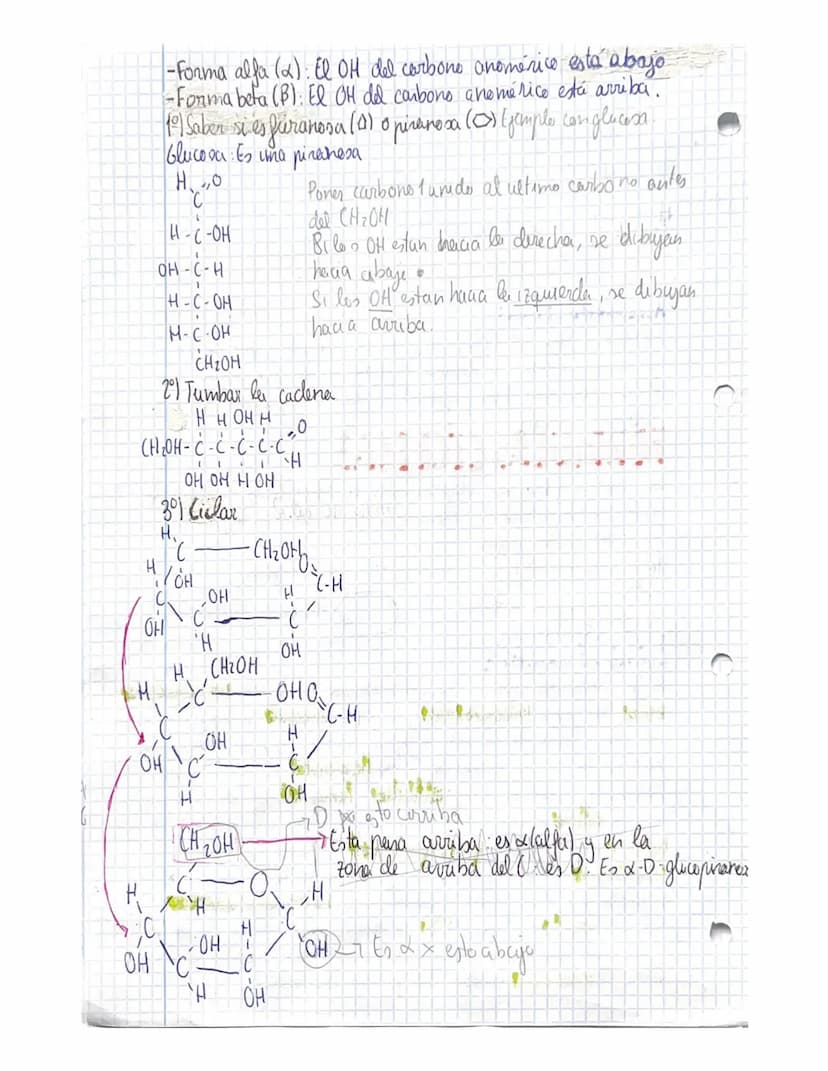 -Forma alfa (α): El OH del carbono anomérico está abajo
-Forma beta (β): El OH del carbono anomérico está arriba.
1º) Saber si es furanosa (⌂) o piranosa (⬡) Ejemplo con glucosa.
Glucosa: Es una piranosa
H O
C
H-C-OH
OH-C-H
H-C-OH
H-C-OH
CH2OH
Poner carbono 1 unido al ultimo carbono antes
del CH2OH
Si los OH estan hacia la derecha, se dibujan
hacia abajo.
Si los OH estan hacia la izquierda, se dibujan
hacia arriba.
2º) Tumbar la cadena
H H OH H
O
CH2OH-C-C-C-C-C
H
OH OH H OH
3º) Ciclar
H
C — CH2OH O
H OH C-H
C OH H
OH C — C
H OH
H CH2OH
H C — OH O
C C-H
OH OH H
C — C
H OH
D x esto arriba
CH2OH → Esta para arriba: es α (alfa) y en la
zona de arriba del C: es D. Es α-D-glucopiranosa
C — O H
H H C
C OH H OH → Es α x esto abajo
OH C — C
H OH